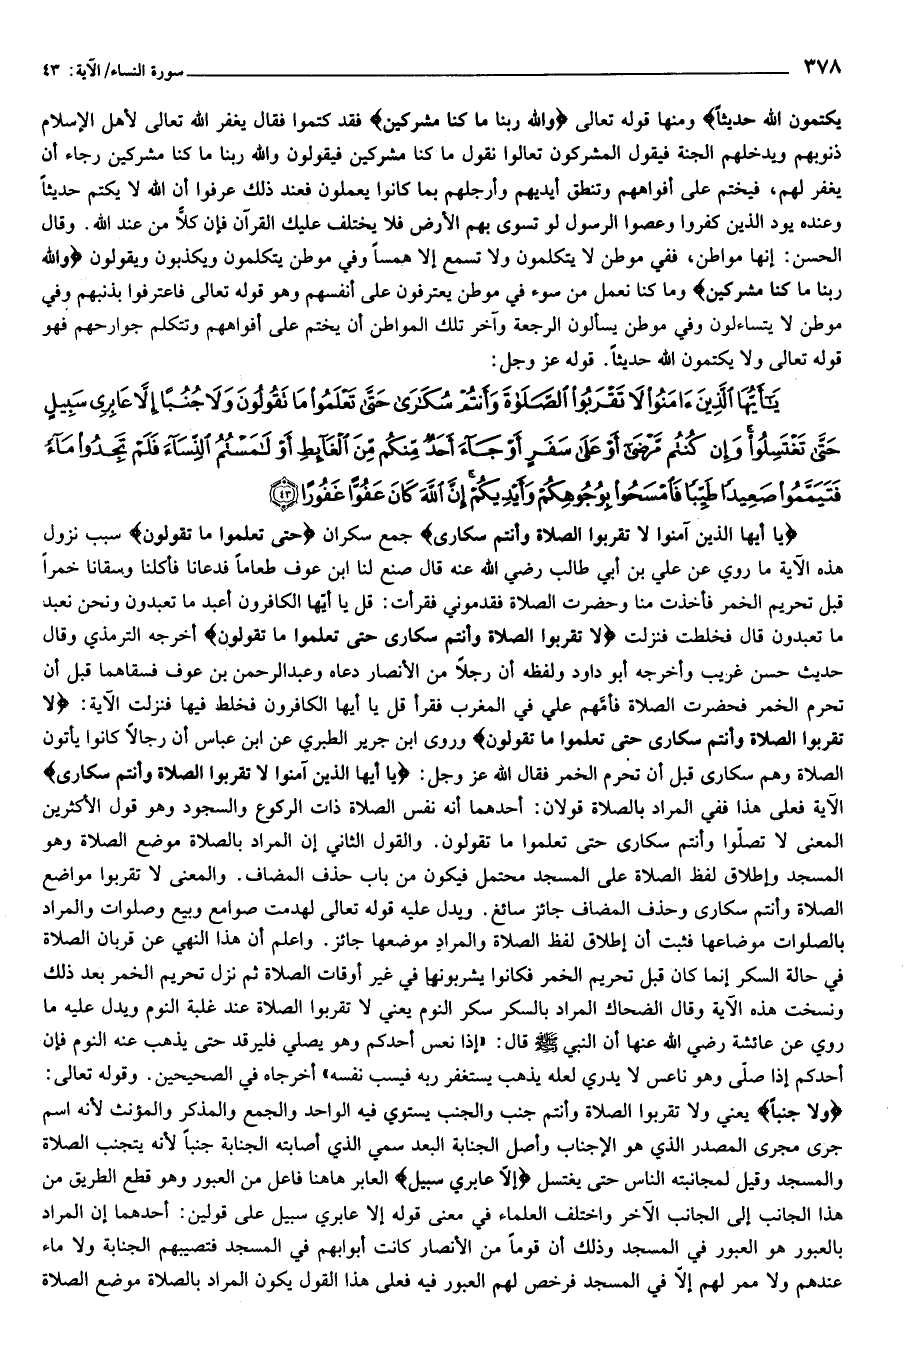 ٣٧٨ سورة النساء/ الآية: ٤٣
يكتمون الله حديثاً﴾ ومنها قوله تعالى ﴿والله ربنا ما كنا مشركين﴾ فقد كتموا فقال يغفر الله تعالى لأهل الإسلام
ذنوبهم ويدخلهم الجنة فيقول المشركون تعالوا نقول ما كنا مشركين فيقولون والله ربنا ما كنا مشركين رجاء أن
يغفر لهم، فيختم على أفواههم وتنطق أيديهم وأرجلهم بما كانوا يعملون فعند ذلك عرفوا أن الله لا يكتم حديثاً
وعنده يود الذين كفروا وعصوا الرسول لو تسوى بهم الأرض فلا يختلف عليك القرآن فإن كلاًّ من عند الله. وقال
الحسن: إنها مواطن، ففي موطن لا يتكلمون ولا تسمع إلا همساً وفي موطن يتكلمون ويكذبون ويقولون ﴿والله
ربنا ما كنا مشركين﴾ وما كنا نعمل من سوء في موطن يعترفون على أنفسهم وهو قوله تعالى فاعترفوا بذنبهم وفي
موطن لا يتساءلون وفي موطن يسألون الرجعة وآخر تلك المواطن أن يختم على أفواههم وتتكلم جوارحهم فهو
قوله تعالى ولا يكتمون الله حديثاً. قوله عز وجل:
يَٰٓأَيُّهَا ٱلَّذِينَ ءَامَنُوا۟ لَا تَقْرَبُوا۟ ٱلصَّلَوٰةَ وَأَنتُمْ سُكَٰرَىٰ حَتَّىٰ تَعْلَمُوا۟ مَا تَقُولُونَ وَلَا جُنُبًا إِلَّا عَابِرِى سَبِيلٍ
حَتَّىٰ تَغْتَسِلُوا۟ۚ وَإِن كُنتُم مَّرْضَىٰٓ أَوْ عَلَىٰ سَفَرٍ أَوْ جَآءَ أَحَدٌ مِّنكُم مِّنَ ٱلْغَآئِطِ أَوْ لَٰمَسْتُمُ ٱلنِّسَآءَ فَلَمْ تَجِدُوا۟ مَآءً
فَتَيَمَّمُوا۟ صَعِيدًا طَيِّبًا فَٱمْسَحُوا۟ بِوُجُوهِكُمْ وَأَيْدِيكُمْۗ إِنَّ ٱللَّهَ كَانَ عَفُوًّا غَفُورًا ﴿٤٣﴾
﴿يا أيها الذين آمنوا لا تقربوا الصلاة وأنتم سكارى﴾ جمع سكران ﴿حتى تعلموا ما تقولون﴾ سبب نزول
هذه الآية ما روي عن علي بن أبي طالب رضي الله عنه قال صنع لنا ابن عوف طعاماً فدعانا فأكلنا وسقانا خمراً
قبل تحريم الخمر فأخذت منا وحضرت الصلاة فقدموني فقرأت: قل يا أيّها الكافرون أعبد ما تعبدون ونحن نعبد
ما تعبدون قال فخلطت فنزلت ﴿لا تقربوا الصلاة وأنتم سكارى حتى تعلموا ما تقولون﴾ أخرجه الترمذي وقال
حديث حسن غريب وأخرجه أبو داود ولفظه أن رجلاً من الأنصار دعاه وعبدالرحمن بن عوف فسقاهما قبل أن
تحرم الخمر فحضرت الصلاة فأمّهم علي في المغرب فقرأ قل يا أيها الكافرون فخلط فيها فنزلت الآية: ﴿لا
تقربوا الصلاة وأنتم سكارى حتى تعلموا ما تقولون﴾ وروى ابن جرير الطبري عن ابن عباس أن رجالاً كانوا يأتون
الصلاة وهم سكارى قبل أن تحرم الخمر فقال الله عز وجل: ﴿يا أيها الذين آمنوا لا تقربوا الصلاة وأنتم سكارى﴾
الآية فعلى هذا ففي المراد بالصلاة قولان: أحدهما أنه نفس الصلاة ذات الركوع والسجود وهو قول الأكثرين
المعنى لا تصلّوا وأنتم سكارى حتى تعلموا ما تقولون. والقول الثاني إن المراد بالصلاة موضع الصلاة وهو
المسجد وإطلاق لفظ الصلاة على المسجد محتمل فيكون من باب حذف المضاف. والمعنى لا تقربوا مواضع
الصلاة وأنتم سكارى وحذف المضاف جائز سائغ. ويدل عليه قوله تعالى لهدمت صوامع وبيع وصلوات والمراد
بالصلوات موضاعها فثبت أن إطلاق لفظ الصلاة والمراد موضعها جائز. واعلم أن هذا النهي عن قربان الصلاة
في حالة السكر إنما كان قبل تحريم الخمر فكانوا يشربونها في غير أوقات الصلاة ثم نزل تحريم الخمر بعد ذلك
ونسخت هذه الآية وقال الضحاك المراد بالسكر سكر النوم يعني لا تقربوا الصلاة عند غلبة النوم ويدل عليه ما
روي عن عائشة رضي الله عنها أن النبي ﷺ قال: «إذا نعس أحدكم وهو يصلي فليرقد حتى يذهب عنه النوم فإن
أحدكم إذا صلّى وهو ناعس لا يدري لعله يذهب يستغفر ربه فيسب نفسه» أخرجاه في الصحيحين. وقوله تعالى:
﴿ولا جنباً﴾ يعني ولا تقربوا الصلاة وأنتم جنب والجنب يستوي فيه الواحد والجمع والمذكر والمؤنث لأنه اسم
جرى مجرى المصدر الذي هو الإجناب وأصل الجنابة البعد سمي الذي أصابته الجنابة جنباً لأنه يتجنب الصلاة
والمسجد وقيل لمجانبته الناس حتى يغتسل ﴿إلاّ عابري سبيل﴾ العابر هاهنا فاعل من العبور وهو قطع الطريق من
هذا الجانب إلى الجانب الآخر واختلف العلماء في معنى قوله إلا عابري سبيل على قولين: أحدهما إن المراد
بالعبور هو العبور في المسجد وذلك أن قوماً من الأنصار كانت أبوابهم في المسجد فتصيبهم الجنابة ولا ماء
عندهم ولا ممر لهم إلاّ في المسجد فرخص لهم العبور فيه فعلى هذا القول يكون المراد بالصلاة موضع الصلاة